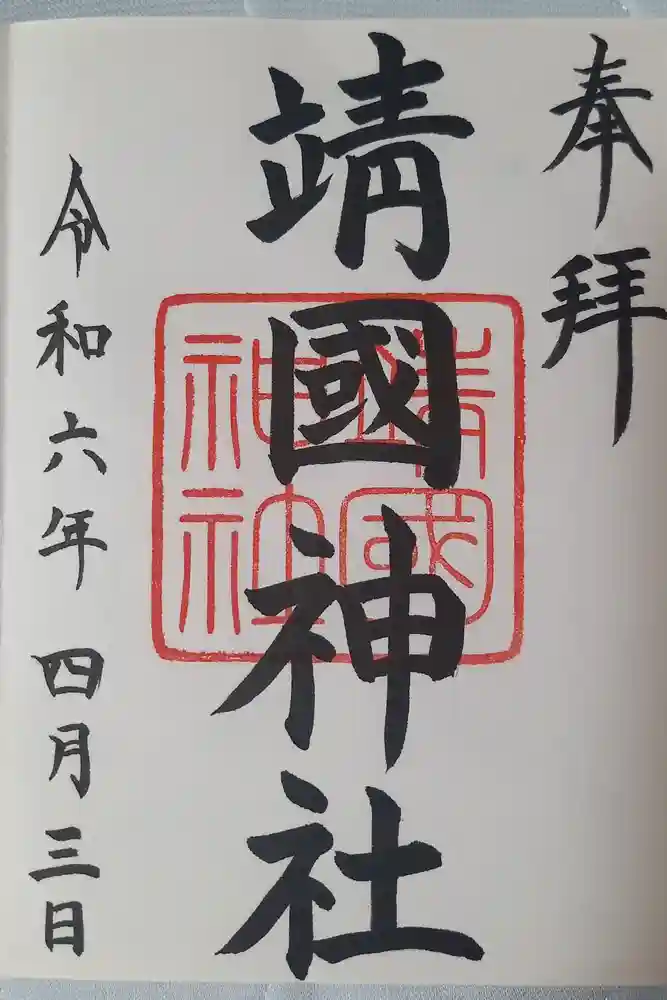 奉拝
靖國神社
靖國神社
令和六年 四月三日